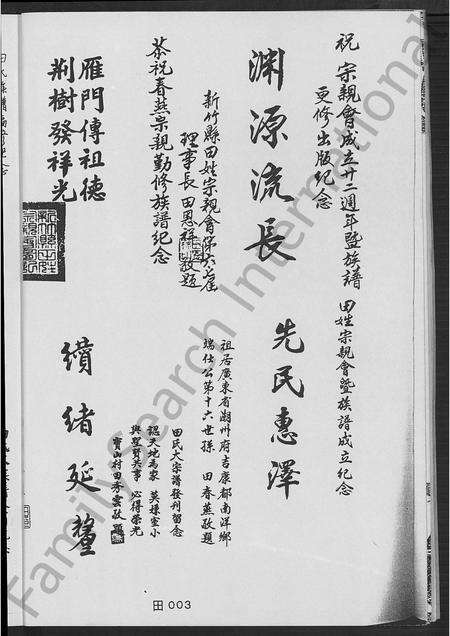 祝 宗親會成立廿二週年暨族譜
更修出版紀念
淵源流長
新竹縣田姓宗親會第六七屆
理事長 田恩祥 敬題
恭祝春燕宗親勤修族譜紀念
雁門傳祖德
荆樹發祥光
田姓宗親會暨族譜成立紀念
先民惠澤
祖居廣東省潮州府吉康都南洋鄉
端仕公第十六世孫 田春燕敬題
田氏大宗譜發刊留念
認天地為家 莫嫌室小
與聖賢共事 必得榮光
寶山村田秀雲敬題
纘緒延釐
田 003
FamilySearch International